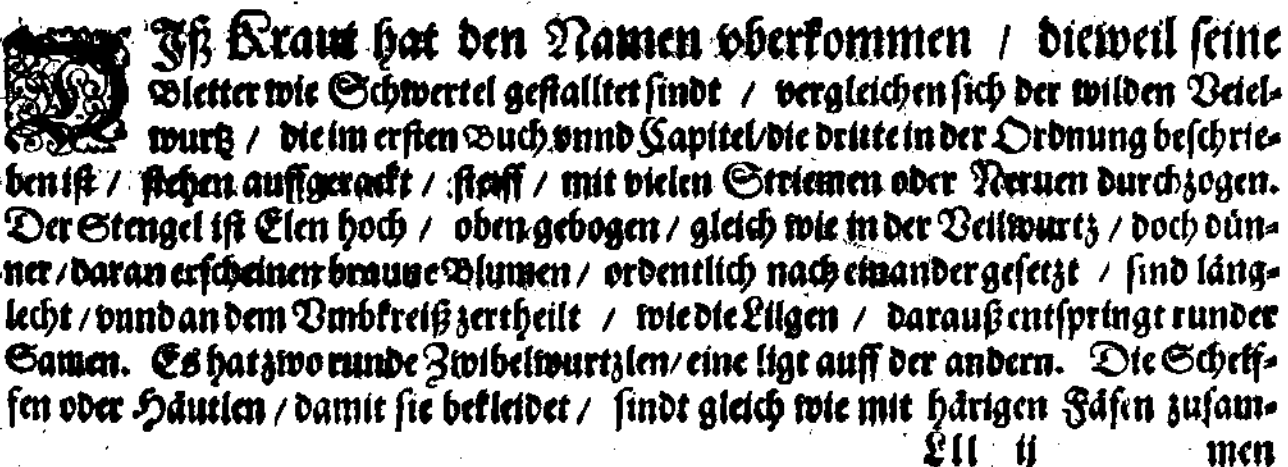 DIß Kraut hat den Namen vberkommen / dieweil seine
Bletter wie Schwertel gestalltet sindt / vergleichen sich der wilden Veiel-
wurtz / die im ersten Buch vnnd Capitel / die dritte in der Ordnung beschrie-
ben ist / stehen auffgerackt / steiff / mit vielen Striemen oder Neruen durchzogen.
Der Stengel ist Elen hoch / oben gebogen / gleich wie in der Veilwurtz / doch dün-
ner / daran erscheinen braune Blumen / ordentlich nach einander gesetzt / sind läng-
lecht / vnnd an dem Vmbkreiß zertheilt / wie die Lilgen / darauß entspringt runder
Samen. Es hat zwo runde Zwibelwurtzlen / eine ligt auff der andern. Die Schelf-
fen oder Häutlen / damit sie bekleidet / sindt gleich wie mit härigen Fäsen zusam-
Lll ij men